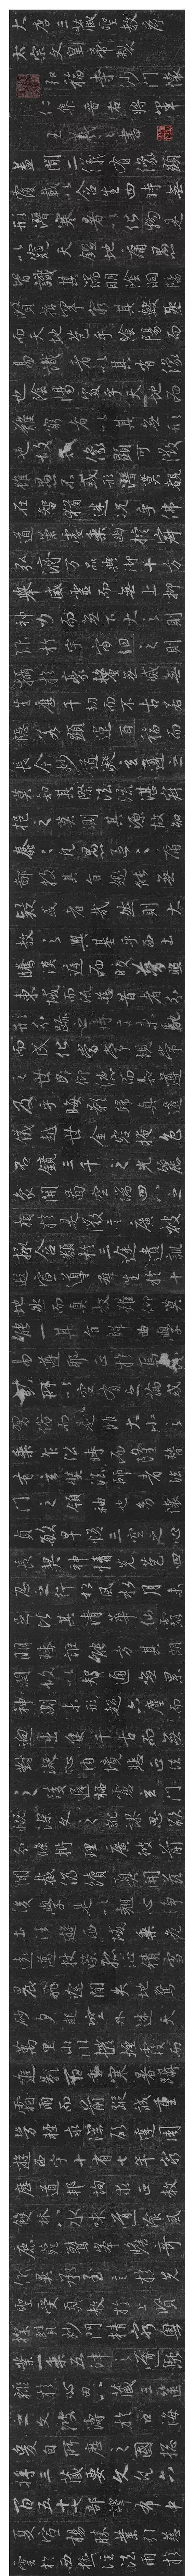 大唐三藏聖教序
太宗文皇帝製
弘福寺沙門懷
仁集晉右將軍
王羲之書
蓋聞二儀有像顯
覆載以含生四時無
形潛寒暑以化物是
以窺天鑒地庸愚
皆識其端明陰洞陽
賢哲罕窮其數然
而天地苞乎陰陽而
易識者以其有像
也陰陽處乎天地而
難窮者以其無形
也故知像顯可徵
雖愚不惑形潛莫覩
在智猶迷況乎佛
道崇虛乘幽控寂
弘濟萬品典御十方
舉威靈而無上抑
神力而無下大之則
彌於宇宙細之則
攝於毫釐無滅無
生歷千劫而不古若
隱若顯運百福而
長今妙道凝玄遵之
莫知其際法流湛寂
挹之莫測其源故知
蠢蠢凡愚區區庸
鄙投其旨趣能無
疑惑者哉然則大
教之興基乎西土
騰漢庭而皎夢照
東域而流慈昔者分
形分跡之時言未馳
而成化當常現常
之世民仰德而知遵
及乎晦影歸真遷
儀越世金容掩色
不鏡三千之光麗
象開圖空端四八之
相於是微言廣被
拯含類於三途遺訓
遐宣導群生於十
地然而真教難仰莫
能一其旨歸曲學
易遵邪正於焉紛
糺所以空有之論或
習俗而是非大小之
乘乍沿時而隆替
有玄奘法師者法
門之領袖也幼懷
貞敏早悟三空之心
長契神情先苞四
忍之行松風水月未
足比其清華仙露
明珠詎能方其朗
潤故以智通無累
神測未形超六塵而
迥出隻千古而無
對凝心內境悲正法
之陵遲栖慮玄門
慨深文之訛謬思欲
分條析理廣彼前
聞截偽續真開茲
後學是以翹心淨
土往遊西域乘危
遠邁杖策孤征積雪
晨飛途間失地驚
砂夕起空外迷天
萬里山川撥煙霞而
進影百重寒暑躡
霜雨而前蹤誠重
勞輕求深願達周
遊西宇十有七年窮
歷道邦詢求正教
雙林八水味道餐風
鹿苑鷲峰瞻奇
仰異承至言於先
聖受真教於上賢
探賾妙門精窮奧
業一乘五律之道馳
驟於心田八藏三篋
之文波濤於口海
爰自所歷之國總
將三藏要文凡六
百五十七部譯布中
夏宣揚勝業引慈
雲於西極注法雨於